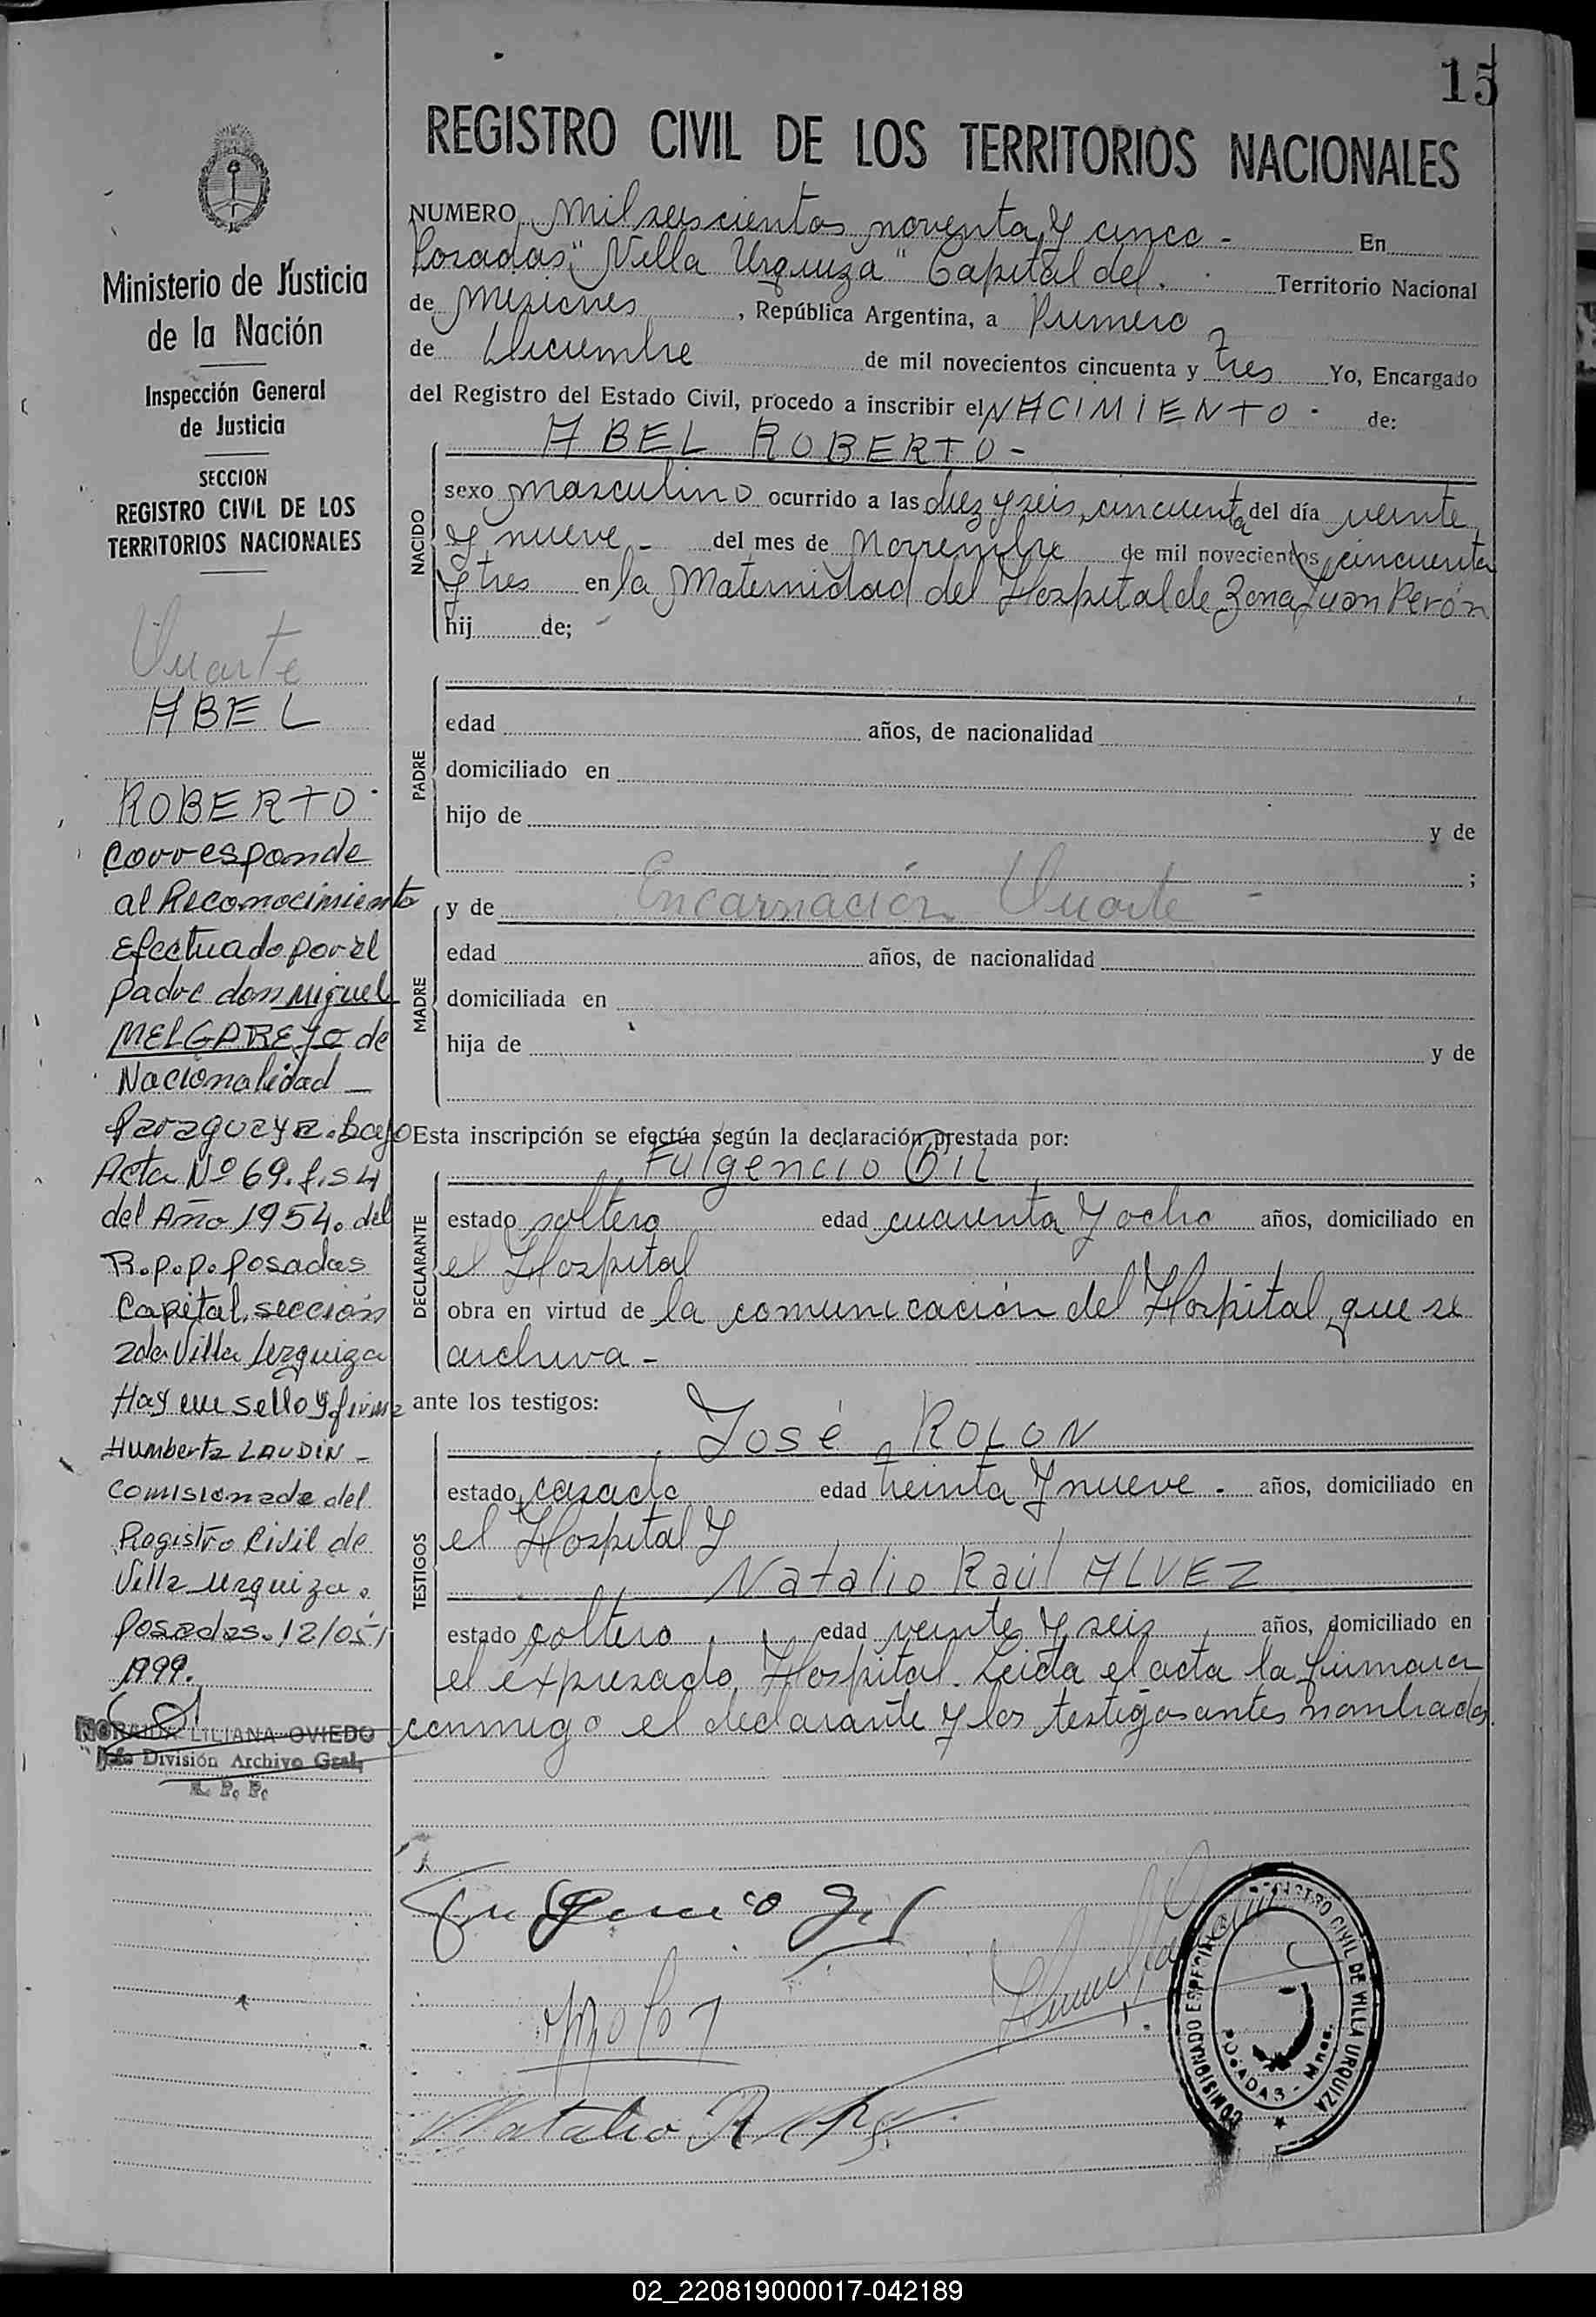 15
REGISTRO CIVIL DE LOS TERRITORIOS NACIONALES
Ministerio de Justicia
de la Nación
Inspección General
de Justicia
SECCION
REGISTRO CIVIL DE LOS
TERRITORIOS NACIONALES
Duarte
ABEL
ROBERTO.
Corresponde
al Reconocimiento
Efectuado por el
padre don Miguel
MELGAREJO de
Nacionalidad
Paraguaya. bajo
Acta Nº 69. f. 54
del Año 1954. del
R.p.p. Posadas
Capital. sección
2da Villa Urquiza
Hay un sello y firma
Humberto LAUDIN -
Comisionado del
Registro Civil de
Villa Urquiza.
Posadas. 12/05/
1999.
LILIANA OVIEDO
Jefe División Archivo Gral.
R. P. P.
NUMERO Mil seiscientos noventa y cinco - En
Posadas, "Villa Urquiza" Capital del. Territorio Nacional
de Misiones, República Argentina, a Primero
de Diciembre de mil novecientos cincuenta y tres Yo, Encargado
del Registro del Estado Civil, procedo a inscribir el NACIMIENTO. de:
ABEL ROBERTO -
NACIDO
sexo masculino ocurrido a las diez y seis, cincuenta del día veinte
y nueve - del mes de Noviembre de mil novecientos cincuenta
y tres en la Maternidad del Hospital de Zona Juan Perón
hij de;
PADRE
edad años, de nacionalidad
domiciliado en
hijo de y de
;
MADRE
y de Encarnación Duarte -
edad años, de nacionalidad
domiciliada en
hija de y de
Esta inscripción se efectúa según la declaración prestada por:
Fulgencio GIL
DECLARANTE
estado soltero edad cuarenta y ocho años, domiciliado en
el Hospital
obra en virtud de la comunicación del Hospital, que se
archiva -
ante los testigos:
José ROLON
TESTIGOS
estado casado edad treinta y nueve - años, domiciliado en
el Hospital y
Natalio Raúl ALVEZ
estado soltero edad veinte y seis años, domiciliado en
el expresado Hospital. Leida el acta la firman
conmigo el declarante y los testigos antes nombrados.
Fulgencio Gil
Natalio R
COMISIONADO ESPECIAL REGISTRO CIVIL DE VILLA URQUIZA
POSADAS - Mnes.
02_220819000017-042189